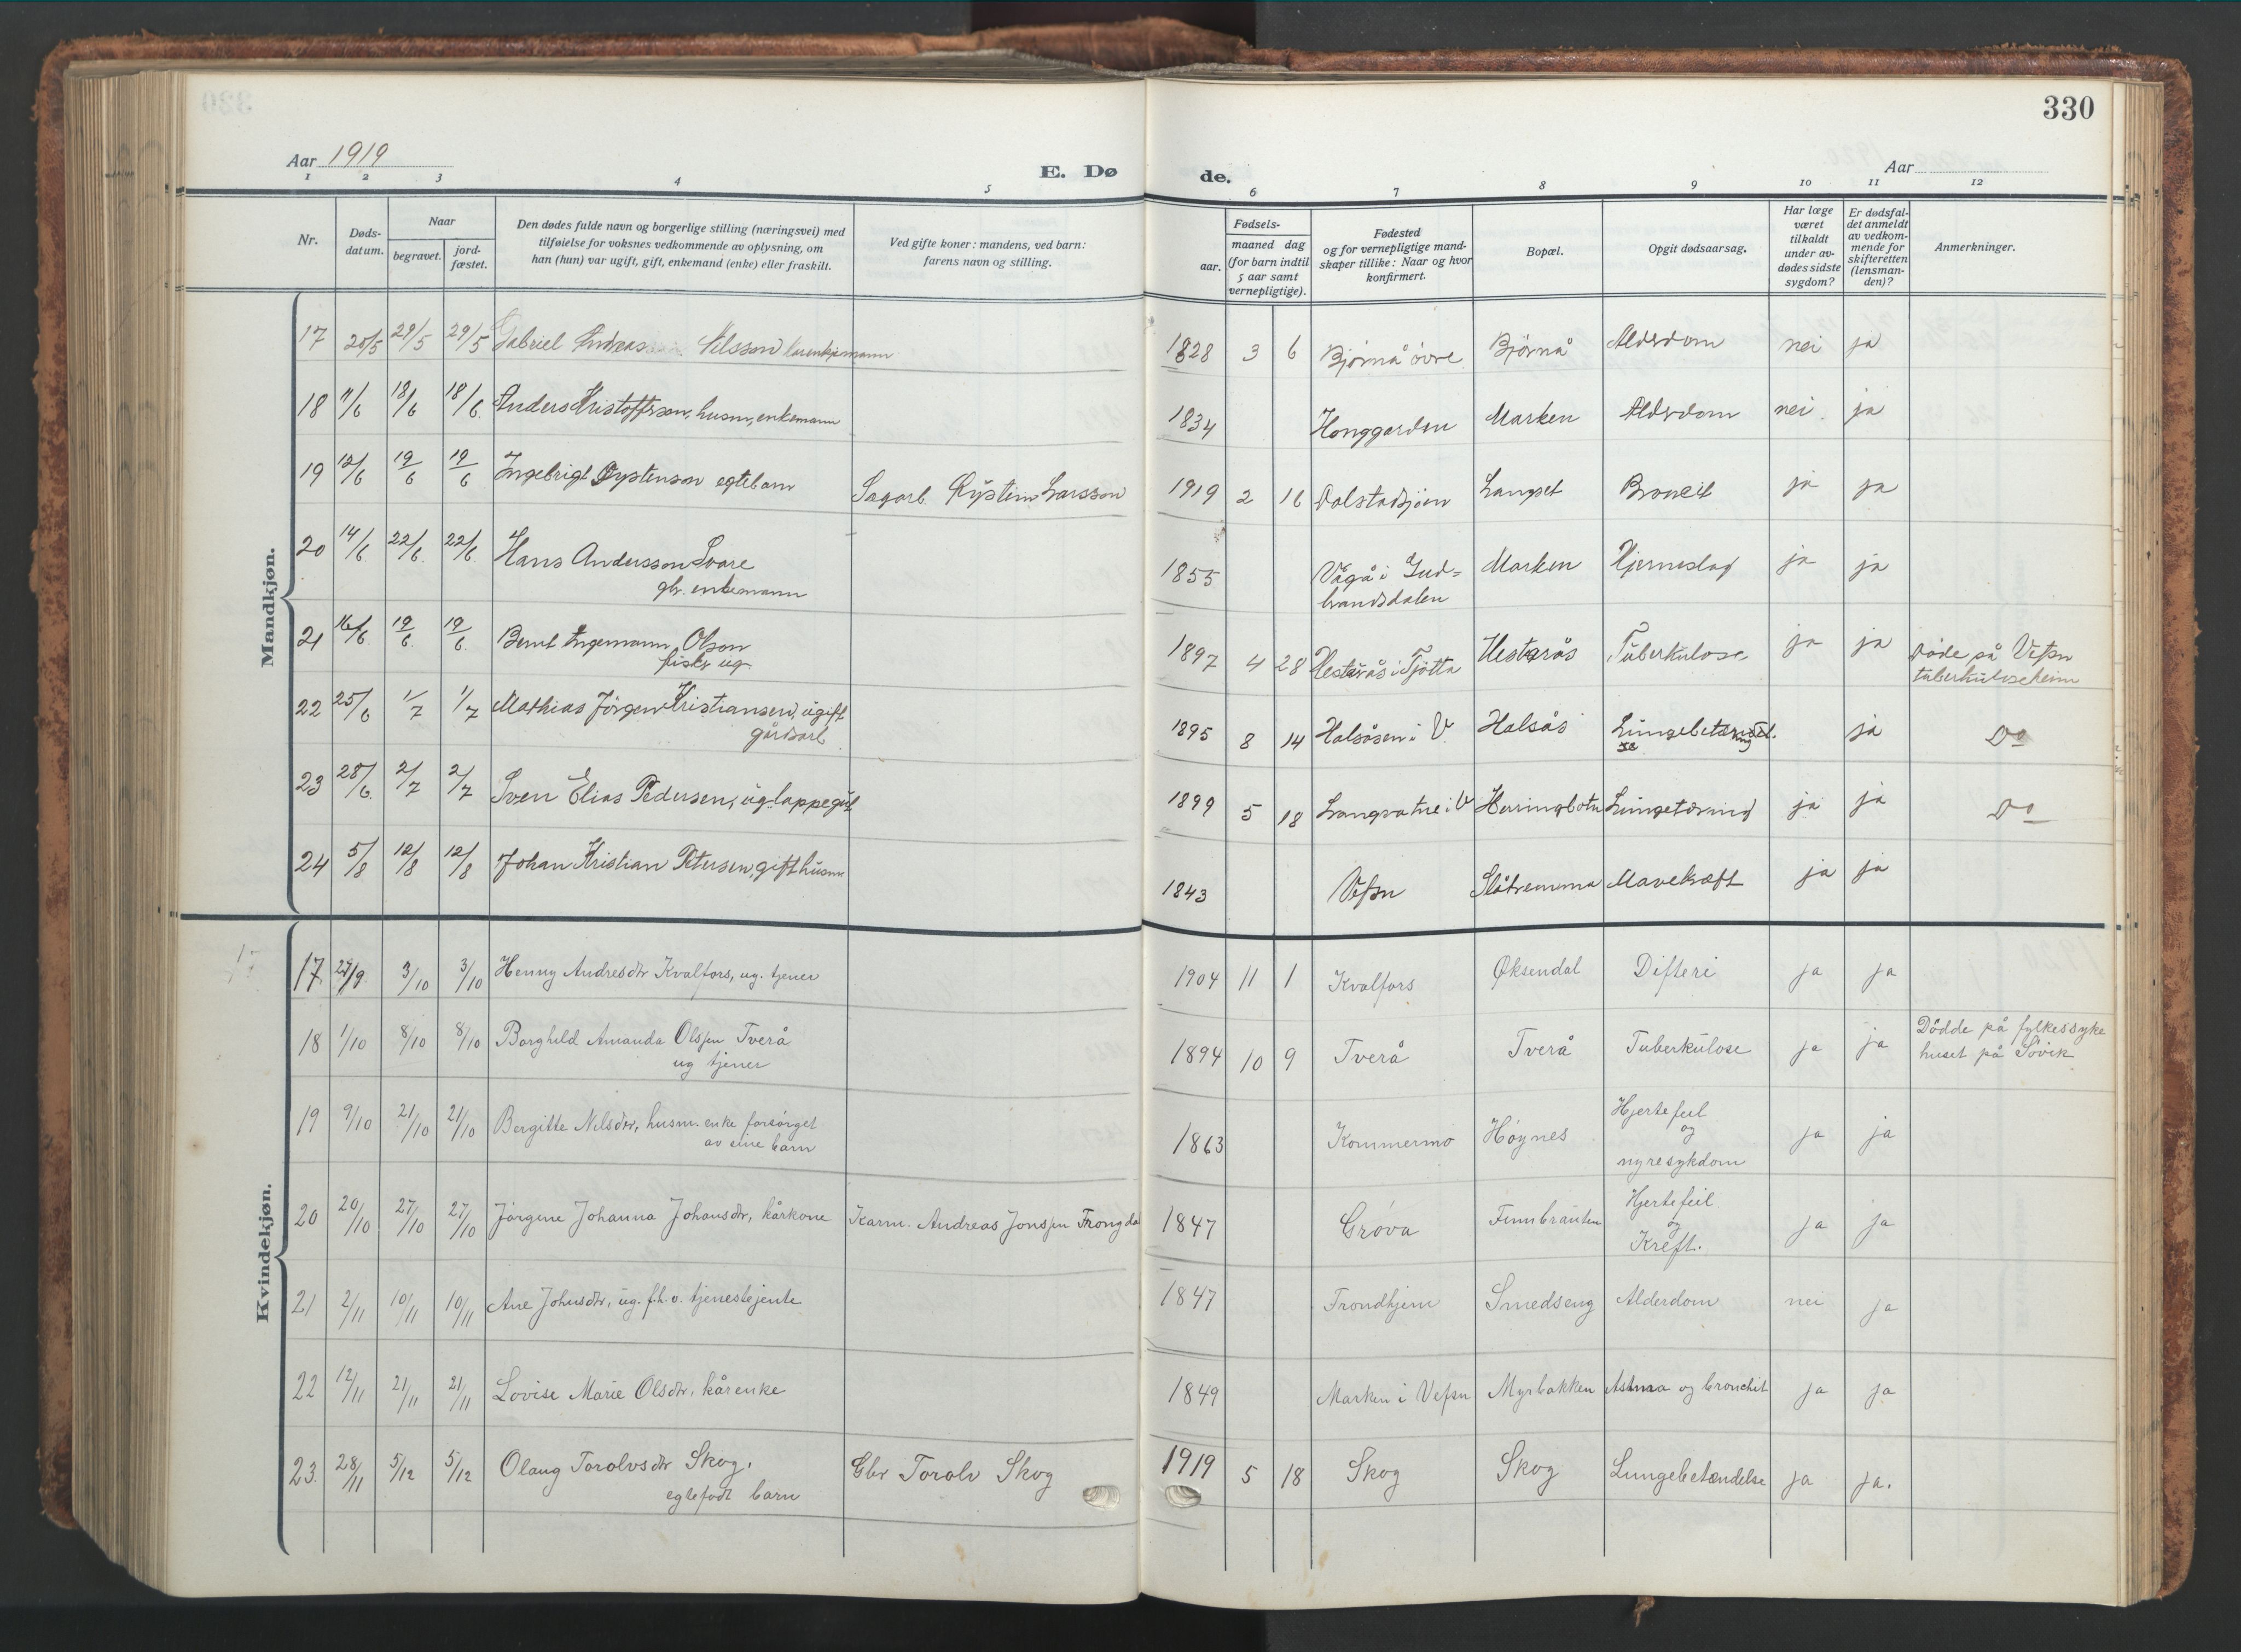 330
Aar 1919
E. Dø de.
Aar
1 2 3 4 5 6 7 8 9 10 11 12
Nr.
Døds-
datum.
Naar
begravet.
jord-
fæstet.
Den dødes fulde navn og borgerlige stilling (næringsvei) med
tilføielse for voksnes vedkommende av oplysning, om
han (hun) var ugift, gift, enkemand (enke) eller fraskilt.
Ved gifte koner: mandens, ved barn:
farens navn og stilling.
Fødsels-
aar.
maaned dag
(for barn indtil
5 aar samt
vernepligtige).
Fødested
og for vernepligtige mand-
skaper tillike: Naar og hvor
konfirmert.
Bopæl.
Opgit dødsaarsag.
Har læge
været
tilkaldt
under av-
dødes sidste
sygdom?
Er dødsfal-
det anmeldt
av vedkom-
mende for
skifteretten
(lensman-
den)?
Anmerkninger.
Mandkjøn.
17 20/5 29/5 29/5 Gabriel Andreas Nilsson 1828 3 6 Bjørnå övre Bjørnå Alderdom nei ja
18 11/6 18/6 18/6 Anders Kristoffersen, husm, enkemann 1834 Honggarden Marken Alderdom nei ja
19 12/6 19/6 19/6 Ingebrigt Øystenson egtebarn Sagarb. Øystein Larsson 1919 2 16 Dolstadsjøen Langset Bronkit ja ja
20 14/6 22/6 22/6 Hans Andersson Svare
gbr. enkemann 1855 Vågå i Gud=
brandsdalen Marken Hjerneslag ja ja
21 16/6 19/6 19/6 Bernt Ingemann Olson
fisker ug. 1897 4 28 Hesterås i Tjötta Hesterås Tuberkulose ja ja Döde på Vefsn
tuberkuloseheim
22 25/6 1/7 1/7 Mathias Jörgen Kristiansen, ugift
gårdsarb. 1895 8 14 Halsåsen i V. Halsås ja Do
23 28/6 2/7 2/7 Sven Elias Pedersen, ug. lappegut 1899 5 18 Langvatnei V Herringbotn Lungetæring ja ja Do
24 5/8 12/8 12/8 Johan Kristian Petersen, gift husm. 1843 Vefsn Slåtremma Mavekræft ja ja
Kvindekjøn.
17 29/9 3/10 3/10 Henny Andresdtr Kvalfors, ug. tjener 1904 11 1 Kvalfors Øksendal Difteri ja ja
18 1/10 8/10 8/10 Borghild Amanda Olsen Tverå
ug tjener 1894 10 9 Tverå Tverå Tuberkulose ja ja Dödde på fylkessyke
huset på Sövik
19 9/10 21/10 21/10 Bergitte Nilsdtr, husm. enke forsörget
av sine barn 1863 Kommermo Höynes Hjertefeil
og
nyresykdom ja ja
20 20/10 27/10 27/10 Jörgene Johanna Johansdtr, kårkone Karm. Andreas Jonsen 1847 Gröva Finnbrauten Hjertefeil
og
Kreft. ja ja
21 2/11 10/11 10/11 Ane Johnsdtr, ug. f.h.v. tjenestejente 1847 Trondhjem Smedseng Alderdom nei ja
22 12/11 21/11 21/11 Lovise Marie Olsdtr, kårenke 1849 Marken i Vefsn Myrbakken Astma og bronchit ja ja
23. 28/11 5/12 5/12 Olaug Torolvsdtr Skog.
egtefödt barn Gbr Torolv Skog 1919 5 18 Skog Skog Lungebetændelse ja ja.